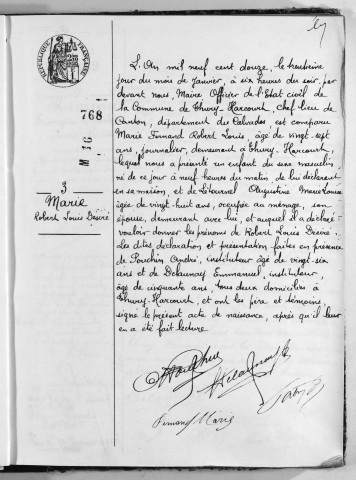 RÉPUBLIQUE FRANÇAISE
768
3
Marie
Robert Louis Désiré
L'An mil neuf cent douze, le treizième
jour du mois de Janvier, à six heures du soir, par
devant nous Maire Officier de l'Etat civil de
la Commune de Thury-Harcourt, Chef-lieu de
Canton, département du Calvados, est comparu
Marie Fernand Robert Louis, âgé de vingt sept
ans, journalier, demeurant à Thury-Harcourt,
lequel nous a présenté un enfant du sexe masculin
né de ce jour à neuf heures du matin, de lui déclarant
en sa maison, et de Augustine Marie Louise
âgée de vingt-huit ans, occupée au ménage, son
épouse, demeurant avec lui, et auquel il a déclaré
vouloir donner les prénoms de Robert Louis Désiré.
Les dites déclaration et présentation faites en présence
de Pouchin André, instituteur âgé de vingt-six
ans et de Delaunay Emmanuel, instituteur,
âgé de cinquante ans, tous deux domiciliés à
Thury-Harcourt, et ont les père et témoins,
signé le présent acte de naissance, après qu'il leur
en a été fait lecture.
Fernand Marie